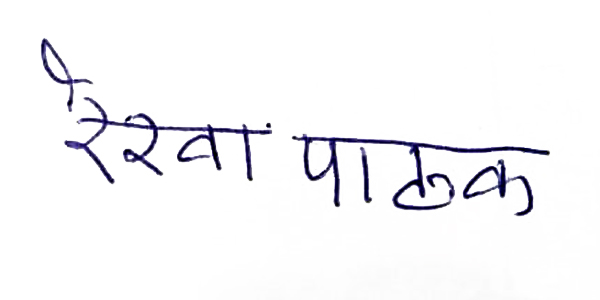 रेखा पाठक